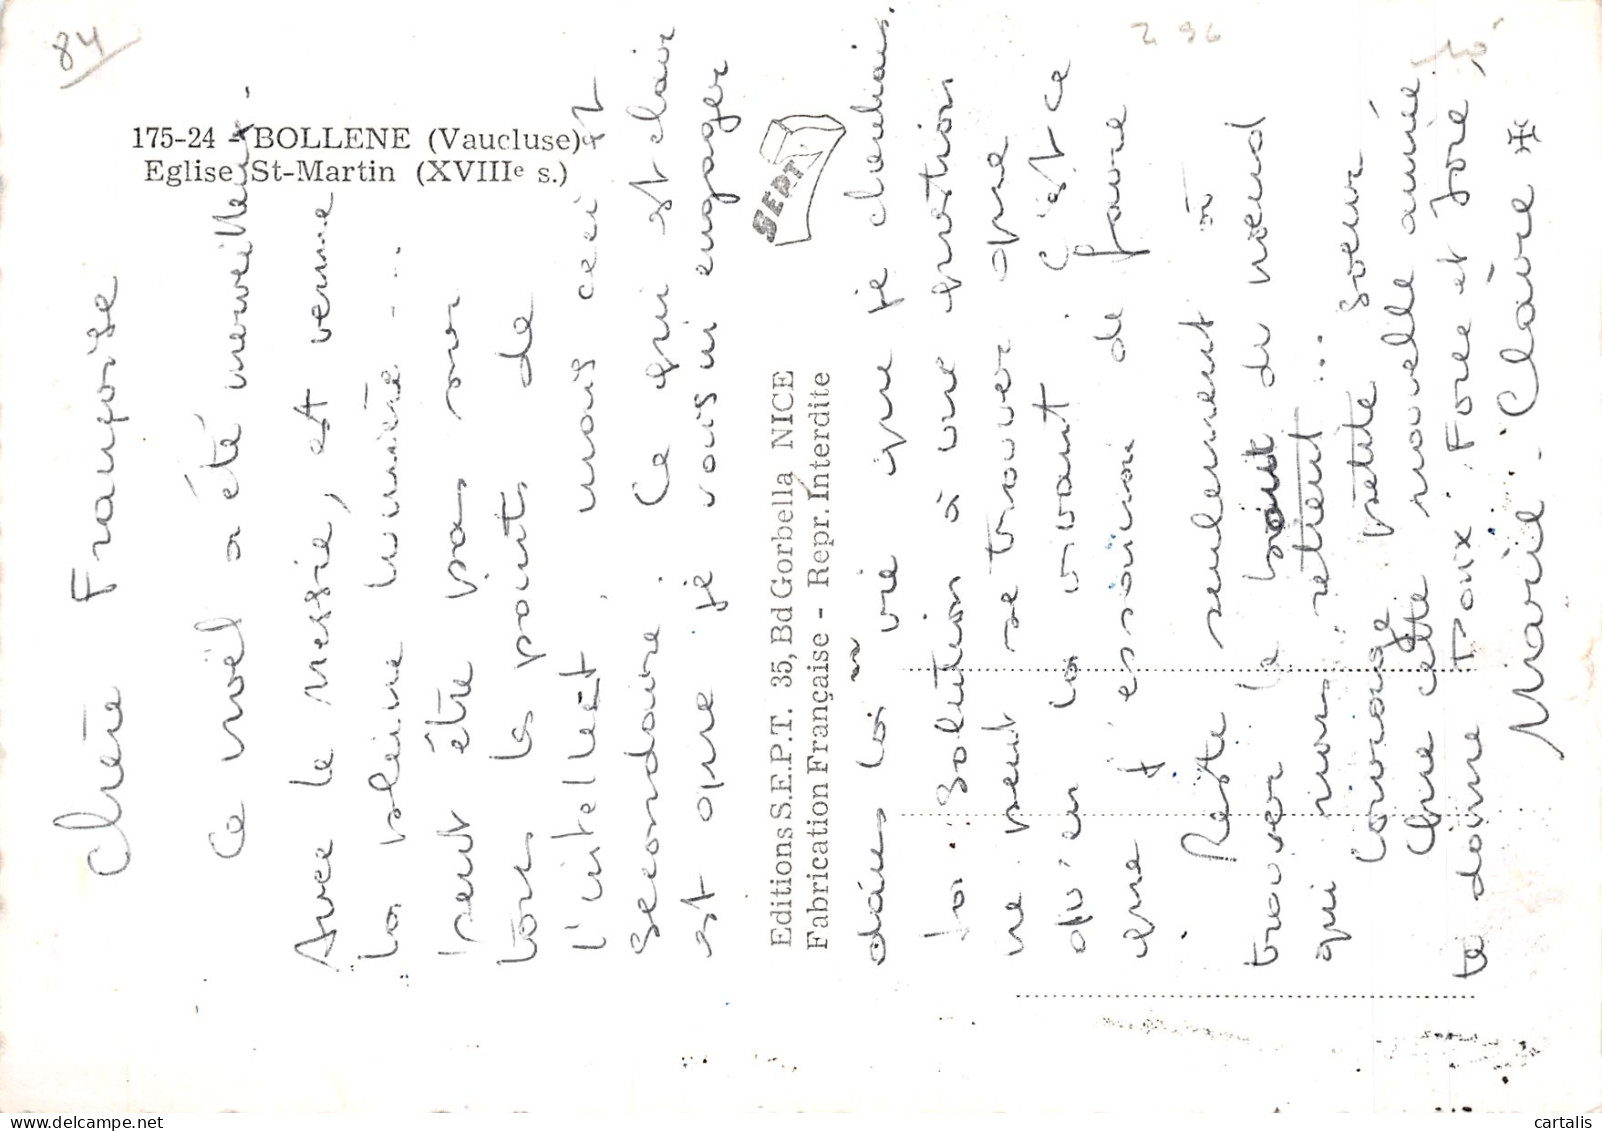 84
2 96
10
175-24 - BOLLENE (Vaucluse)
Eglise St-Martin (XVIIIe s.)
SEPT
Editions S.E.P.T. 35, Bd Gorbella NICE
Fabrication Française - Repr. Interdite
Chère Françoise
Ce noël a été merveilleux.
Avec le Messie, est venue
la pleine lumière...
peut être pas sur
tous les points de
l'intellect, mais ceci est
secondaire. Ce qui est clair
est que je vais m'engager
dans la vie que je cherchais.
la solution à une question
ne peut se trouver que
qu'en la vivant. C'est ce
que j'essaierai de faire
. Reste seulement à
trouver le bout du nœud
qui nous retient...
Courage petite soeur
Que cette nouvelle année
te donne Paix, Force et Joie,
Marie. Claire
delcampe.net
cartalis